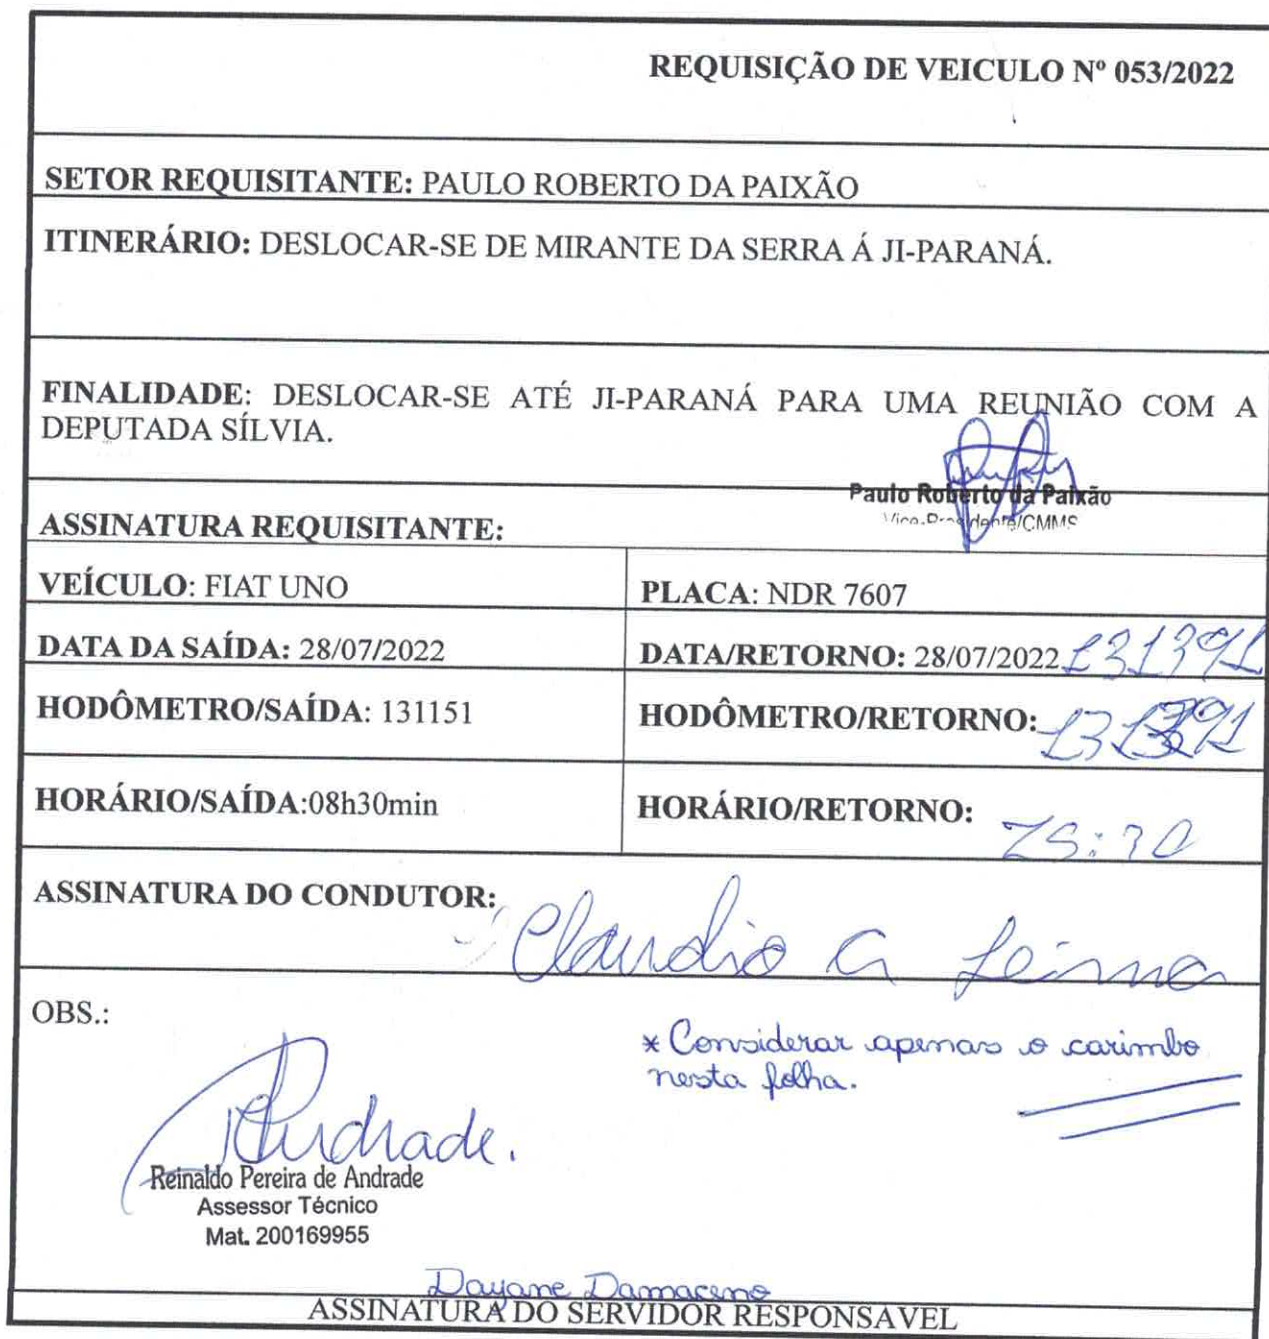 REQUISIÇÃO DE VEICULO Nº 053/2022
SETOR REQUISITANTE: PAULO ROBERTO DA PAIXÃO
ITINERÁRIO: DESLOCAR-SE DE MIRANTE DA SERRA Á JI-PARANÁ.
FINALIDADE: DESLOCAR-SE ATÉ JI-PARANÁ PARA UMA REUNIÃO COM A
DEPUTADA SÍLVIA.
Paulo Roberto da Paixão
Vice-Presidente/CMMS
ASSINATURA REQUISITANTE:
VEÍCULO: FIAT UNO PLACA: NDR 7607
DATA DA SAÍDA: 28/07/2022 DATA/RETORNO: 28/07/2022 131391
HODÔMETRO/SAÍDA: 131151 HODÔMETRO/RETORNO:
HORÁRIO/SAÍDA:08h30min HORÁRIO/RETORNO:
ASSINATURA DO CONDUTOR: Claudio
OBS.:
* Considerar apenas o carimbo
nesta folha.
Andrade.
Reinaldo Pereira de Andrade
Assessor Técnico
Mat. 200169955
Dayane Damaceno
ASSINATURA DO SERVIDOR RESPONSAVEL